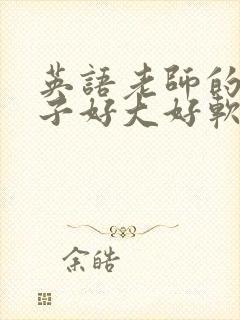 英語老師的
子好大好軟
余皓